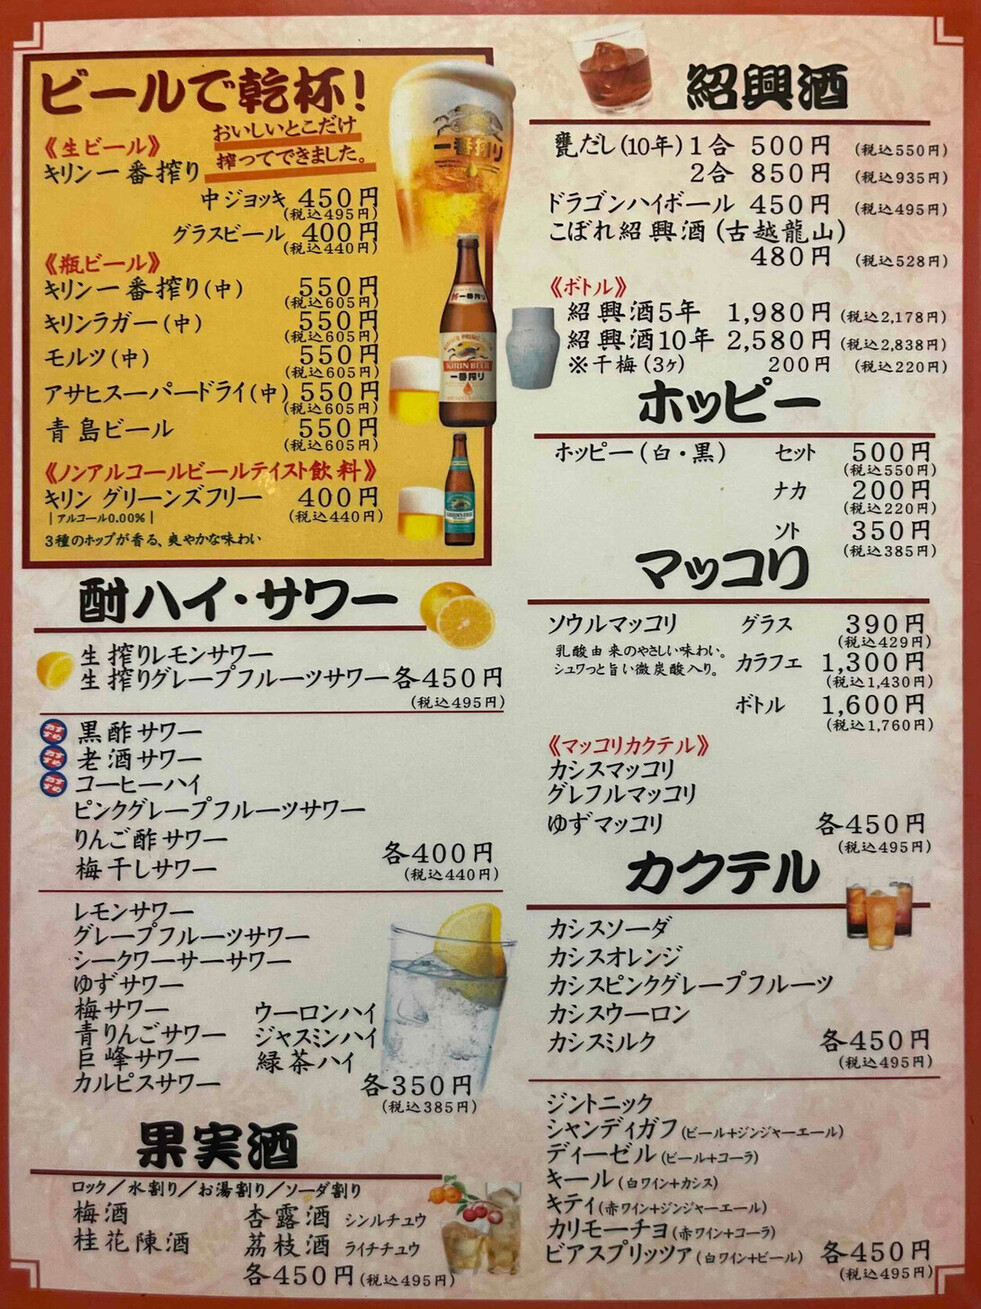 ビールで乾杯!
おいしいとこだけ
搾ってできました。
《生ビール》
キリン一番搾り
中ジョッキ 450円
(税込495円)
グラスビール 400円
(税込440円)
《瓶ビール》
キリン一番搾り(中) 550円
(税込605円)
キリンラガー(中) 550円
(税込605円)
モルツ(中) 550円
(税込605円)
アサヒスーパードライ(中) 550円
(税込605円)
青島ビール 550円
(税込605円)
《ノンアルコールビールテイスト飲料》
キリン グリーンズフリー 400円
|アルコール0.00%| (税込440円)
3種のホップが香る、爽やかな味わい
一番搾り
KIRIN BEER
一番搾り
酎ハイ・サワー
生搾りレモンサワー
生搾りグレープフルーツサワー 各450円
(税込495円)
おすすめ 黒酢サワー
おすすめ 老酒サワー
おすすめ コーヒーハイ
ピンクグレープフルーツサワー
りんご酢サワー
梅干しサワー 各400円
(税込440円)
レモンサワー
グレープフルーツサワー
シークワーサーサワー
ゆずサワー
梅サワー ウーロンハイ
青りんごサワー ジャスミンハイ
巨峰サワー 緑茶ハイ
カルピスサワー 各350円
(税込385円)
果実酒
ロック/水割り/お湯割り/ソーダ割り
梅酒 杏露酒 シンルチュウ
桂花陳酒 茘枝酒 ライチチュウ
各450円(税込495円)
紹興酒
甕だし(10年)1合 500円 (税込550円)
2合 850円 (税込935円)
ドラゴンハイボール 450円 (税込495円)
こぼれ紹興酒(古越龍山)
480円 (税込528円)
《ボトル》
紹興酒5年 1,980円 (税込2,178円)
紹興酒10年 2,580円 (税込2,838円)
※干梅(3ヶ) 200円 (税込220円)
ホッピー
ホッピー(白・黒) セット 500円
(税込550円)
ナカ 200円
(税込220円)
ソト 350円
(税込385円)
マッコリ
ソウルマッコリ グラス 390円
(税込429円)
乳酸由来のやさしい味わい。
シュワっと旨い微炭酸入り。
カラフェ 1,300円
(税込1,430円)
ボトル 1,600円
(税込1,760円)
《マッコリカクテル》
カシスマッコリ
グレフルマッコリ
ゆずマッコリ 各450円
(税込495円)
カクテル
カシスソーダ
カシスオレンジ
カシスピンクグレープフルーツ
カシスウーロン
カシスミルク 各450円
(税込495円)
ジントニック
シャンディガフ(ビール+ジンジャーエール)
ディーゼル(ビール+コーラ)
キール(白ワイン+カシス)
キティ(赤ワイン+ジンジャーエール)
カリモーチョ(赤ワイン+コーラ)
ビアスプリッツァ(白ワイン+ビール) 各450円
(税込495円)